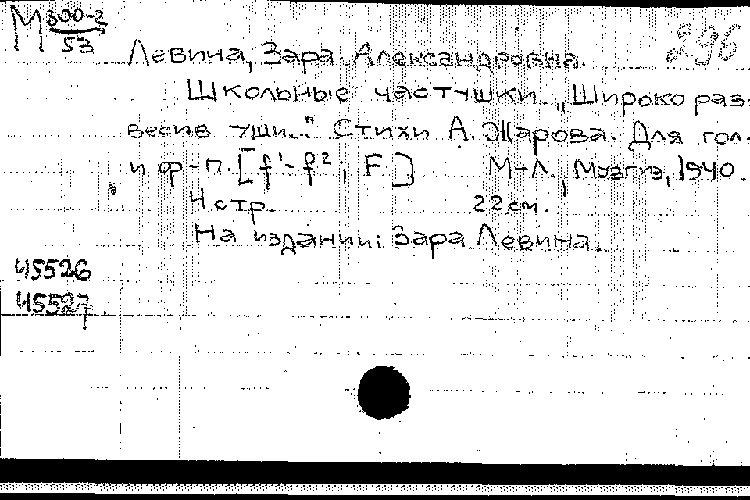 М 800-2
53
296
Левина, Зара Александровна.
Школьные частушки „Широко раз-
весив уши..." Стихи А. Жарова. Для гол.
и ф-п. [f¹-f², F] М-Л., Музгиз, 1940.
4 стр. 22 см.
На издании: Зара Левина.
45526
45527